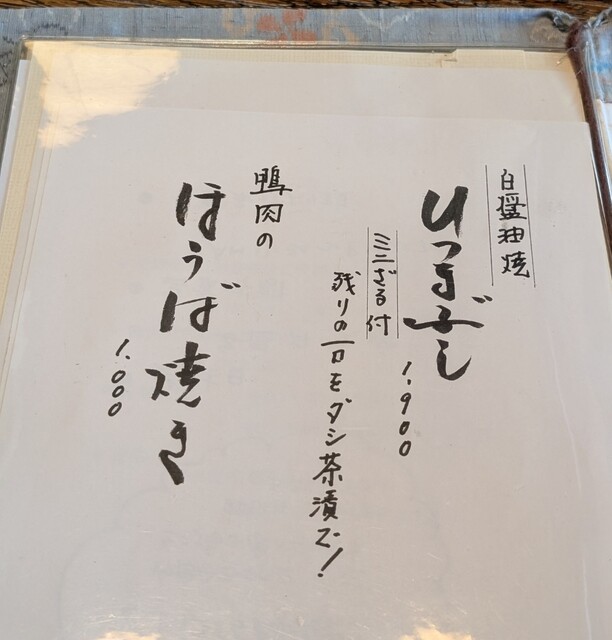 白醤油焼
ひつまぶし
1,900
ミニざる付
残りの一口をダシ茶漬で!
鴨肉の
ほうば焼き
1,000